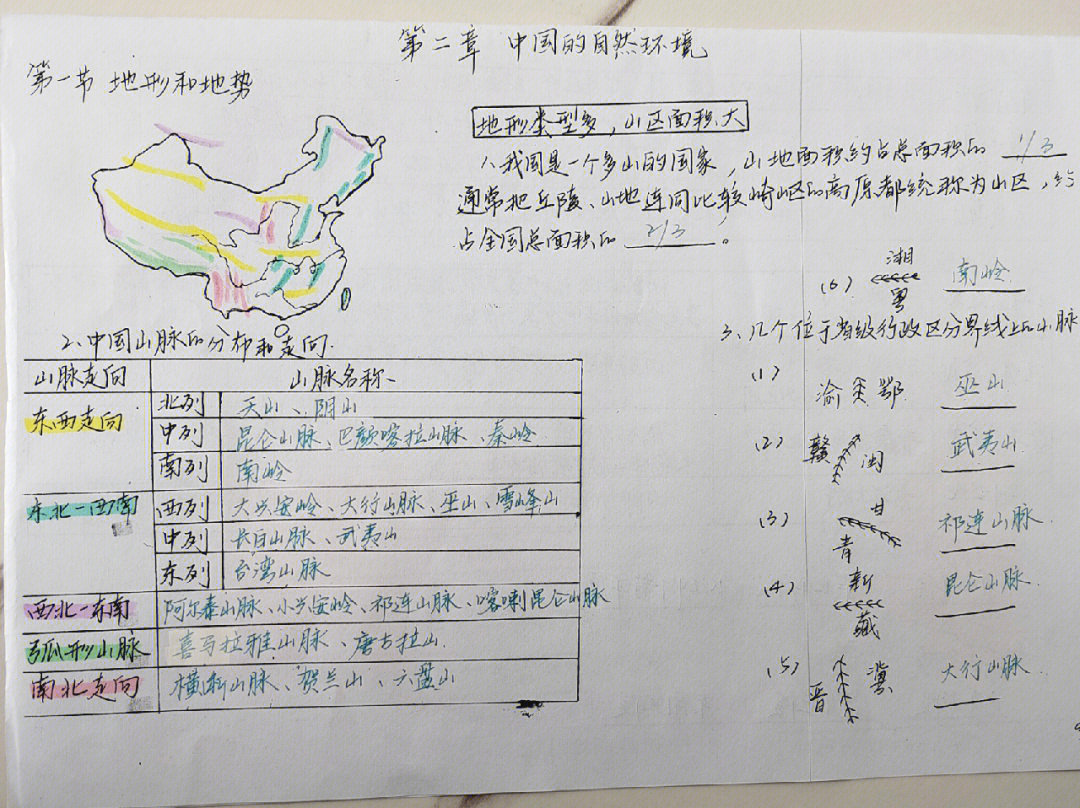 第二章 中国的自然环境
第一节 地形和地势
地形类型多，山区面积大
1、我国是一个多山的国家，山地面积约占总面积的 1/3
通常把丘陵、山地连同比较崎岖的高原都统称为山区，约
占全国总面积的 2/3 。
2、中国山脉的分布和走向.
山脉走向 山脉名称
东西走向
北列 天山、阴山
中列 昆仑山脉、巴颜喀拉山脉、秦岭
南列 南岭
东北-西南
西列 大兴安岭、大行山脉、巫山、雪峰山
中列 长白山脉、武夷山
东列 台湾山脉
西北-东南 阿尔泰山脉、小兴安岭、祁连山脉、喀喇昆仑山脉
弧形山脉 喜马拉雅山脉、唐古拉山
南北走向 横断山脉、贺兰山、六盘山
(6) 湘 粤 南岭
3、几个位于省级行政区分界线上的山脉
(1) 渝 鄂 巫山
(2) 赣 闽 武夷山
(3) 甘 青 祁连山脉
(4) 新 藏 昆仑山脉
(5) 晋 冀 大行山脉